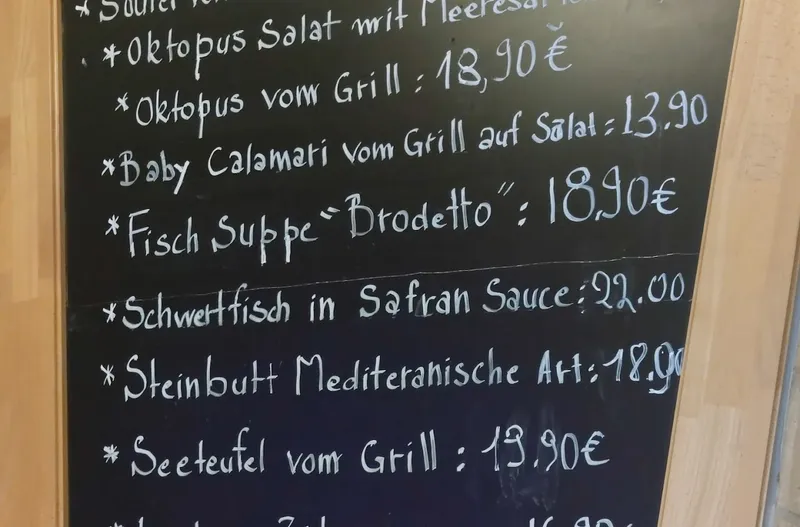 * Oktopus Salat mit
* Oktopus vom Grill : 18,90 €
* Baby Calamari vom Grill auf Salat : 13.90
* Fisch Suppe "Brodetto" : 18,90 €
* Schwertfisch in Safran Sauce : 22.00
* Steinbutt Mediteranische Art : 18.90
* Seeteufel vom Grill : 19.90 €